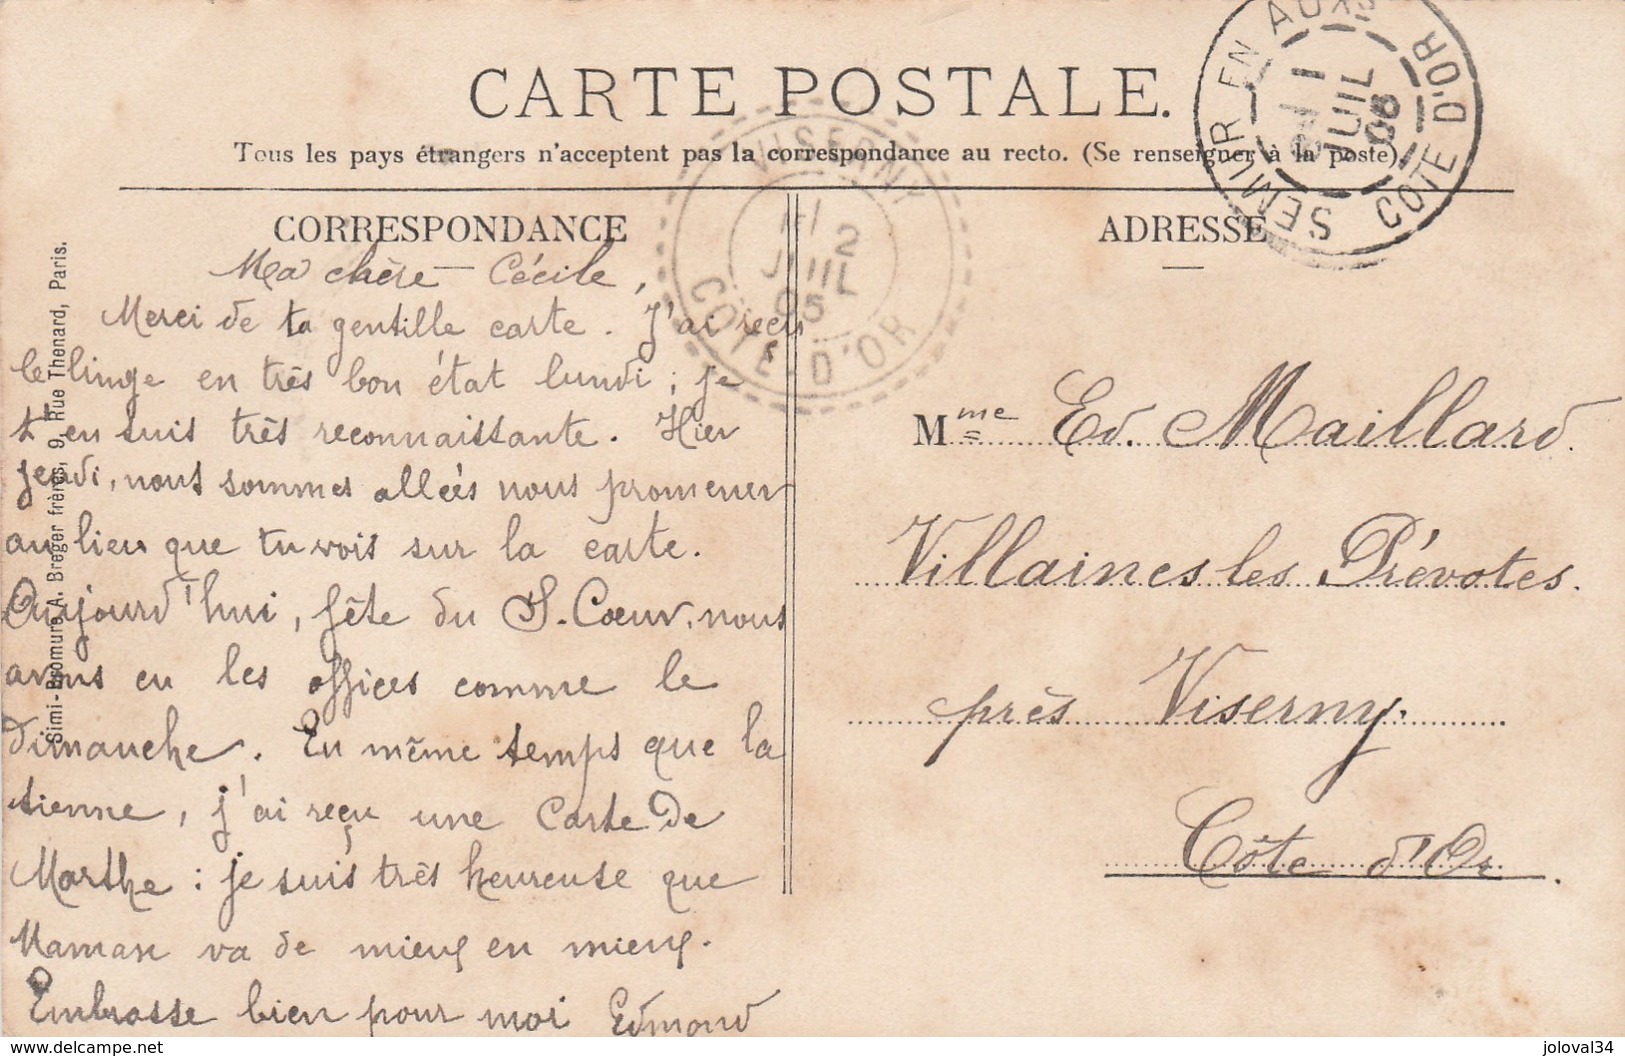 CARTE POSTALE.
Tous les pays étrangers n'acceptent pas la correspondance au recto. (Se renseigner à la poste)
SEMUR EN AUXOIS
CÔTE D'OR
1
JUIL
VISERNY
2
JUIL
05
CÔTE-D'OR
CORRESPONDANCE
Ma chère Cécile,
Merci de ta gentille carte. J'ai reçu
le linge en très bon état lundi ; je
t'en suis très reconnaissante. Hier
jeudi, nous sommes allées nous promener
au lieu que tu vois sur la carte.
Aujourd'hui, fête du S. Cœur, nous
avons eu les offices comme le
dimanche. En même temps que la
tienne, j'ai reçu une carte de
Marthe : je suis très heureuse que
Maman va de mieux en mieux.
Embrasse bien pour moi Edmond
Simi-Bromure A. Breger frères, 9, Rue Thenard, Paris.
ADRESSE
Mme Ed. Maillard.
Villaines les Prévotes.
près Viserny.
Côte d'Or.
www.delcampe.net
joloval34